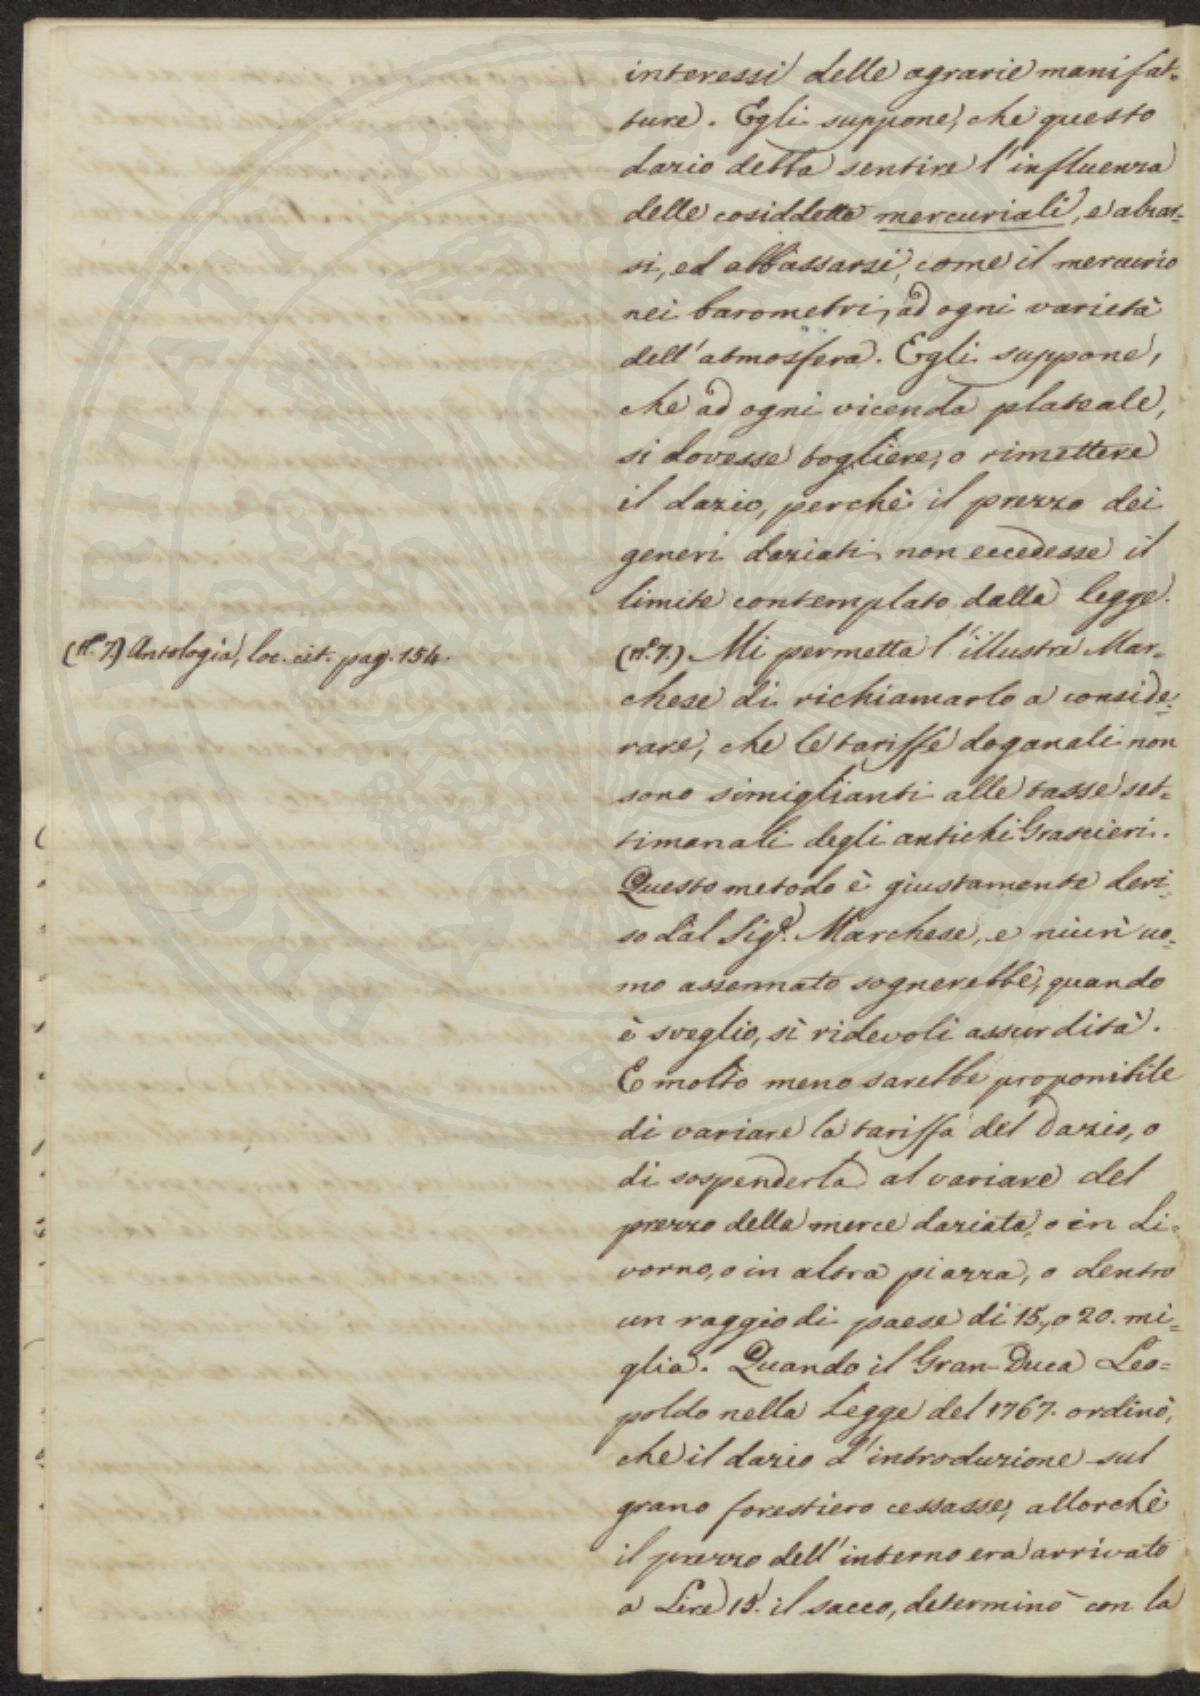 interessi delle agrarie manifat-
ture. Egli suppone, che questo
dazio debba sentire l'influenza
delle cosiddette mercuriali, e alzar=
si, ed abbassarsi, come il mercurio
nei barometri, ad ogni varietà
dell'atmosfera. Egli suppone,
che ad ogni vicenda plateale,
si dovesse togliere, o rimettere
il dazio, perchè il prezzo dei
generi daziati non eccedesse il
limite contemplato dalla legge.
(n.º 7.) Antologia, loc. cit. pag. 154.
(n.º 7.) Mi permetta l'illustre Mar=
chese di richiamarlo a conside=
rare, che le tariffe doganali non
sono simiglianti alle tasse set=
timanali degli antichi Grascieri.
Questo metodo è giustamente deri=
so dal Sig.r Marchese, e niun uo=
mo assennato sognerebbe, quando
è sveglio, sì ridevoli assurdità.
E molto meno sarebbe proponibile
di variare la tariffa del Dazio, o
di sospenderla al variare del
prezzo della merce daziata, o in Li=
vorno, o in altra piazza, o dentro
un raggio di paese di 15, o 20. mi=
glia. Quando il Gran-Duca Leo=
poldo nella Legge del 1767. ordinò,
che il dazio d'introduzione sul
grano forestiero cessasse, allorchè
il prezzo dell'interno era arrivato
a Lire 15. il sacco, determinò con la
POSTERITATI PVBLI